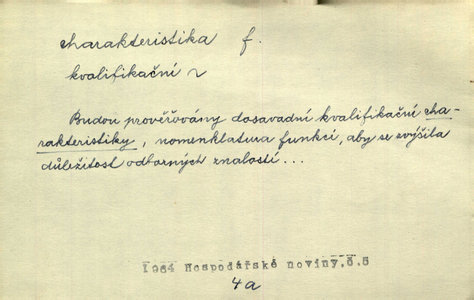 charakteristika f.
kvalifikační ~
Budou prověřovány dosavadní kvalifikační cha-
rakteristiky, nomenklatura funkcí, aby se zvýšila
důležitost odborných znalostí...
1964 Hospodářské noviny,č.5
4a